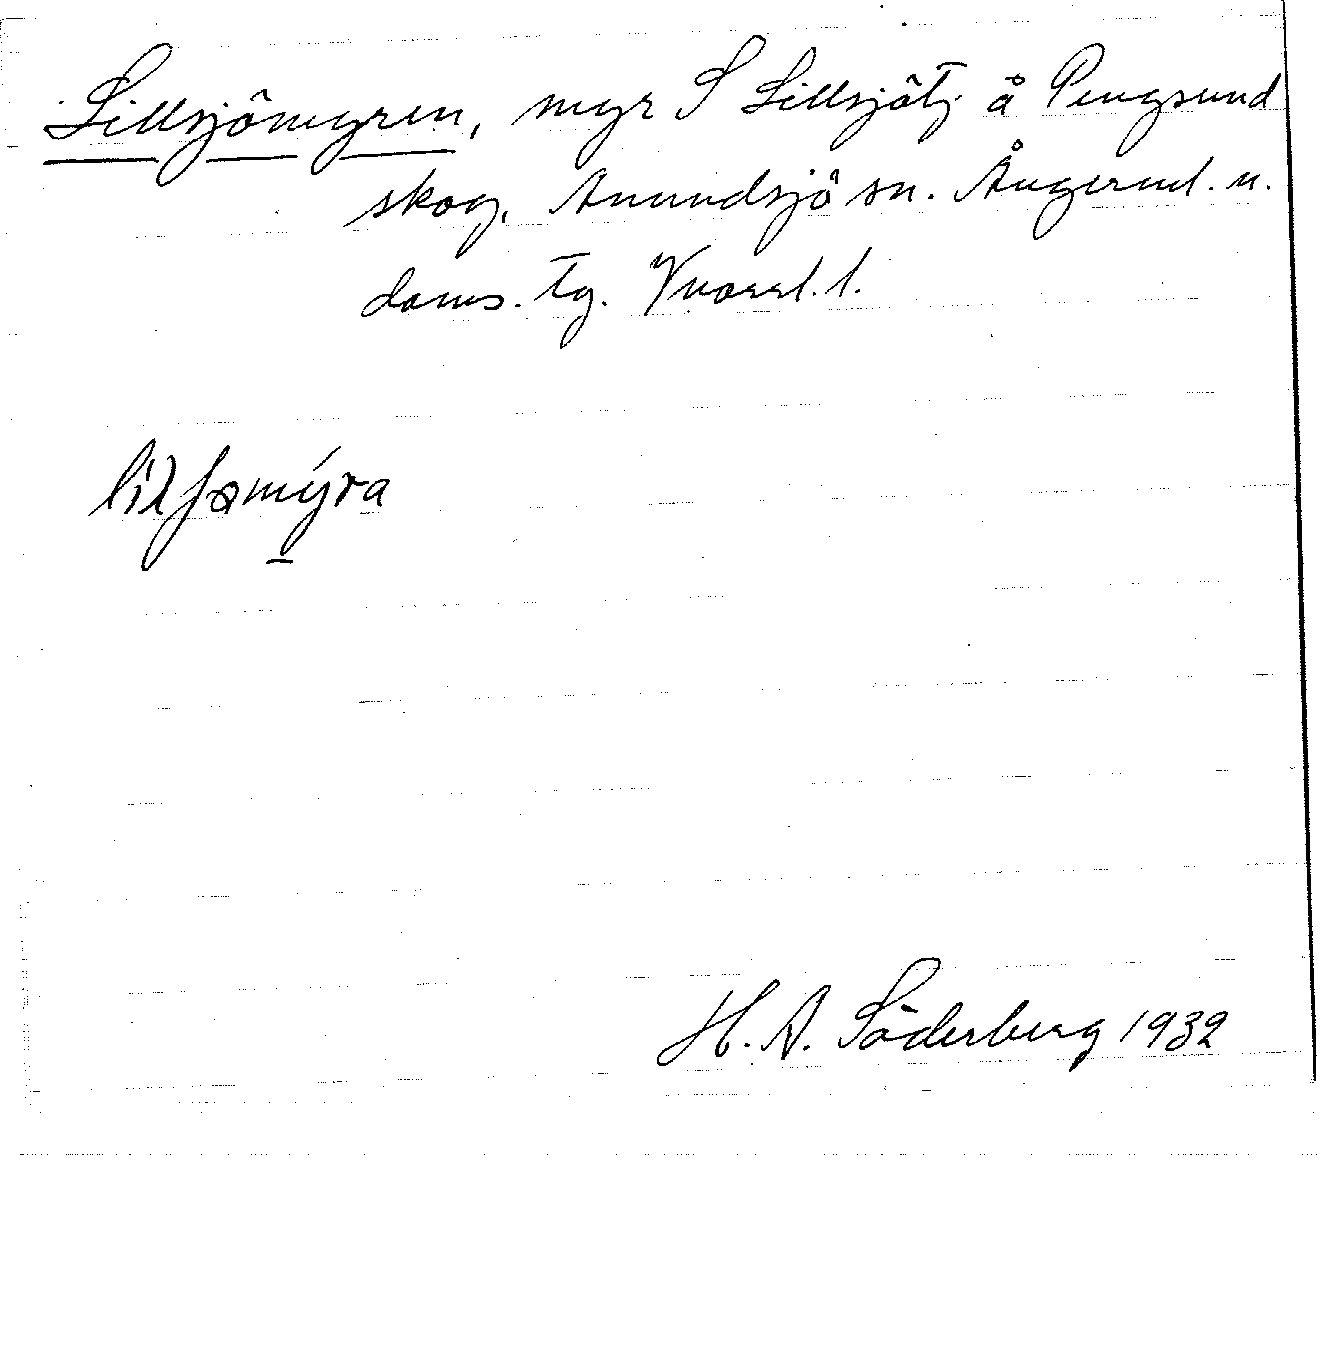 Lillsjömyren, myr S Lillsjötj å Pengsund
skog, Anundsjö sn. Ångerml. n.
doms. tg. Vnorrl. l.
lílʃømýra
H. A. Söderberg 1932